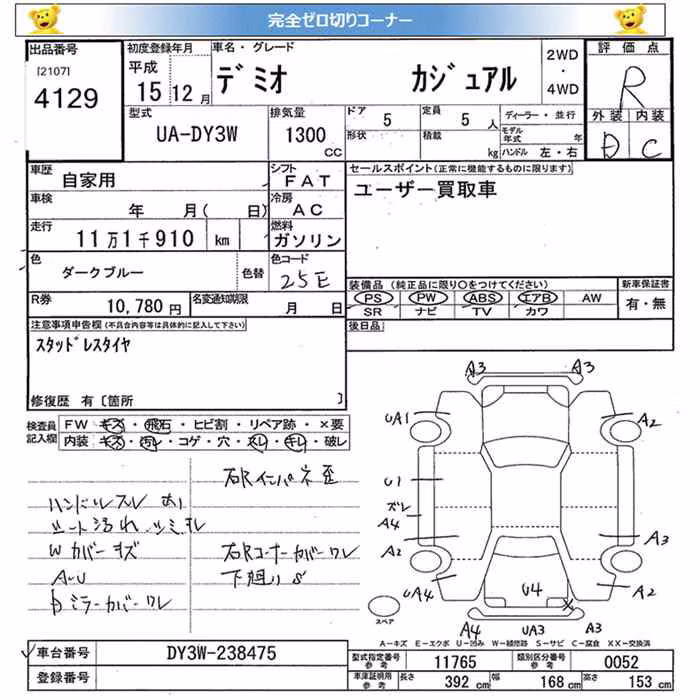 完全ゼロ切りコーナー
出品番号
[2107]
4129
初度登録年月
平成
15 12 月
車名・グレード
デミオ カジュアル
2WD
・
4WD
評価点
R
外装 内装
D C
型式
UA-DY3W
排気量
1300
CC
ドア 5
定員 5 人
形状
積載 kg
ディーラー・並行
モデル年式 年
ハンドル 左・右
車歴 自家用
シフト FAT
車検 年 月( 日)
冷房 AC
走行 11万1千910 km
燃料 ガソリン
色 ダークブルー 色替
色コード 25E
R券 10,780 円
名変通知期限 月 日
セールスポイント(正常に機能するものに限ります)
ユーザー買取車
装備品(純正品に限り○をつけてください)
PS PW ABS エアB AW
SR ナビ TV カワ
新車保証書
有・無
後日品
注意事項申告欄(不具合内容等は具体的に記入して下さい)
スタッドレスタイヤ
修復歴 有〔箇所 〕
検査員記入欄
FW キズ・飛石・ヒビ割・リペア跡・×要
内装 キズ・汚レ・コゲ・穴・スレ・キレ・破レ
右Rインパネ歪
ハンドルスレ あり
シート汚れ、シミ、キレ
Wカバーキズ
右Rコーナーカバーワレ
A~U
下廻りS
ミラーカバーワレ
A3 A3
UA1 A2
U1
ズレ
A4 A3
A2
UA4 U4 A2
A4 UA3 A3
スペア
A－キズ E－エクボ U－凹み W－補修跡 S－サビ C－腐食 XX－交換済
車台番号 DY3W-238475
登録番号
型式指定番号 参考 11765
類別区分番号 参考 0052
車庫証明用 参考 長さ 392 cm 幅 168 cm 高さ 153 cm